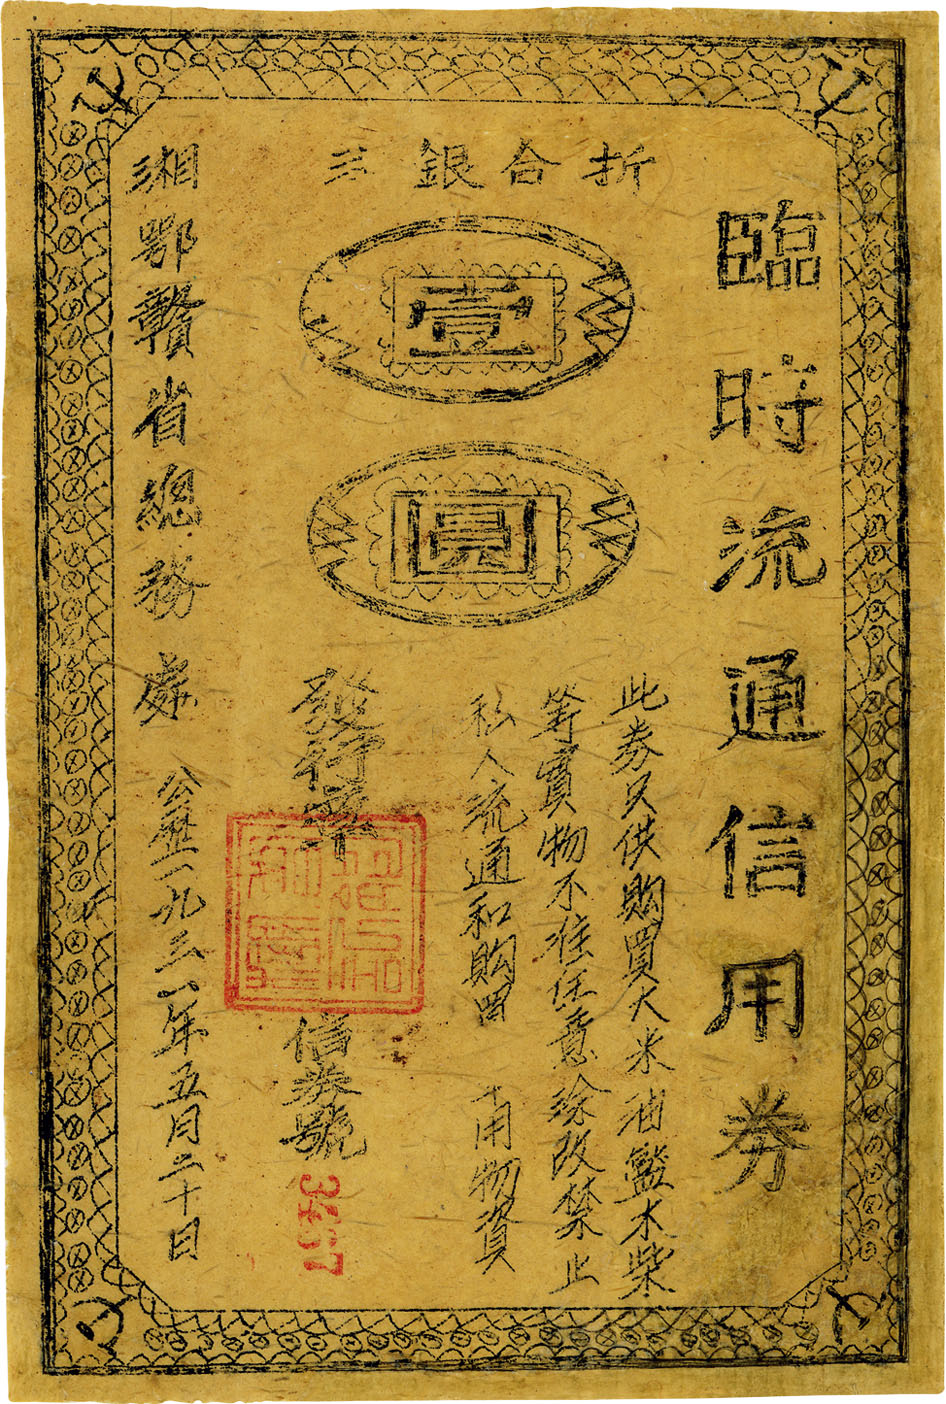 臨時流通信用券
折合銀
壹
圓
此券只供購買大米油鹽木柴
等實物不准任意塗改禁止
私人流通和購買 用物資
發行章
信券號
3467
湘鄂贛省總務處
公歷一九三一年五月二十日